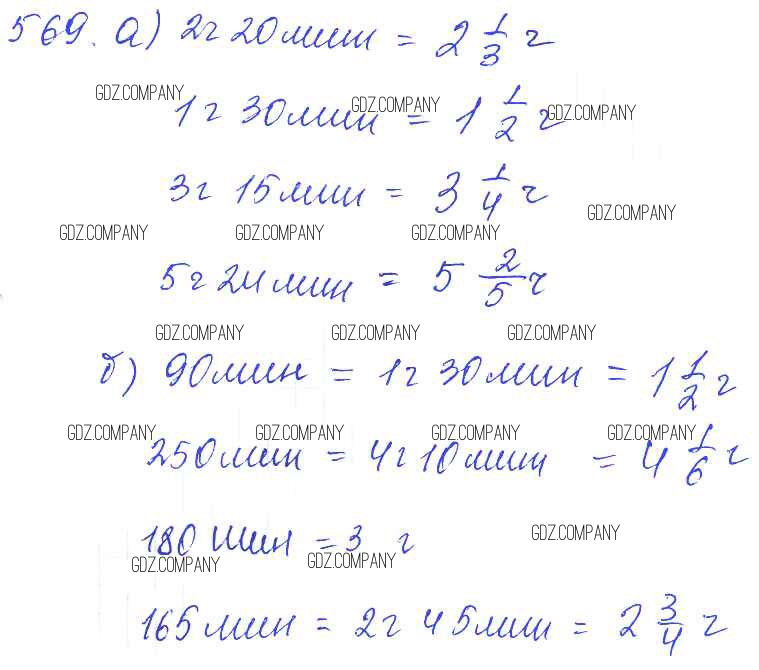 569. а) 2г 20мин = 2 1/3 г
GDZ.COMPANY GDZ.COMPANY GDZ.COMPANY
1г 30мин = 1 1/2 г
3г 15мин = 3 1/4 г
GDZ.COMPANY
GDZ.COMPANY GDZ.COMPANY GDZ.COMPANY
5г 24мин = 5 2/5 г
GDZ.COMPANY GDZ.COMPANY GDZ.COMPANY
б) 90мин = 1г 30мин = 1 1/2 г
GDZ.COMPANY GDZ.COMPANY GDZ.COMPANY GDZ.COMPANY
250мин = 4г 10мин = 4 1/6 г
GDZ.COMPANY
180мин = 3 г
GDZ.COMPANY GDZ.COMPANY
165мин = 2г 45мин = 2 3/4 г